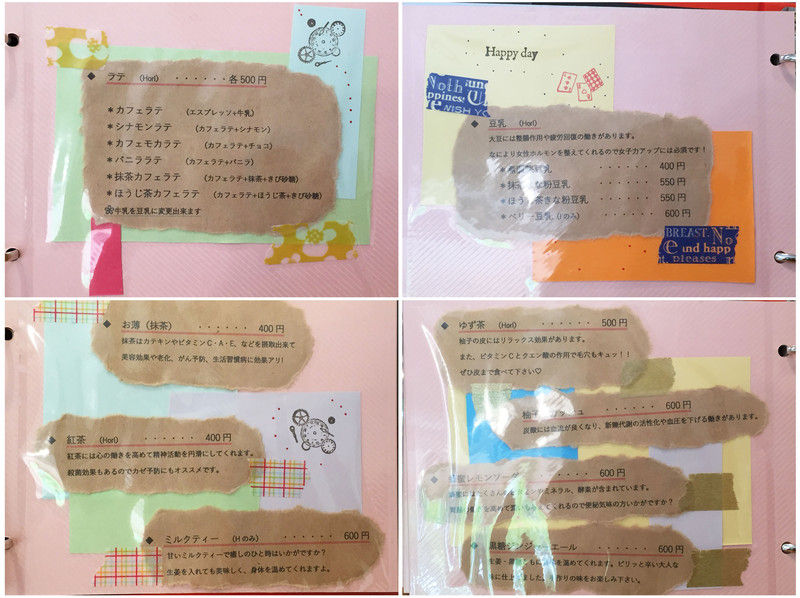 ◆ ラテ (HorI) ・・・・・・各500円
＊カフェラテ (エスプレッソ+牛乳)
＊シナモンラテ (カフェラテ+シナモン)
＊カフェモカラテ (カフェラテ+チョコ)
＊バニララテ (カフェラテ+バニラ)
＊抹茶カフェラテ (カフェラテ+抹茶+きび砂糖)
＊ほうじ茶カフェラテ (カフェラテ+ほうじ茶+きび砂糖)
牛乳を豆乳に変更出来ます
Happy day
◆ 豆乳 (HorI)
大豆には整腸作用や疲労回復の働きがあります。
なにより女性ホルモンを整えてくれるので女子力アップには必須です！
豆乳 ・・・・・・ 400円
＊抹茶きな粉豆乳 ・・・・・・ 550円
＊ほうじ茶きな粉豆乳 ・・・・・・ 550円
＊ベリー豆乳(Iのみ) ・・・・・・ 600円
BREAST. No
e und happ
pleases
◆ お薄（抹茶） ・・・・・・・ 400円
抹茶はカテキンやビタミンC・A・E、などを摂取出来て
美容効果や老化、がん予防、生活習慣病に効果アリ!
◆ 紅茶 (HorI) ・・・・・・・ 400円
紅茶には心の働きを高めて精神活動を円滑にしてくれます。
殺菌効果もあるのでカゼ予防にもオススメです。
◆ ミルクティー (Hのみ) ・・・・・・・ 600円
甘いミルクティーで癒しのひと時はいかがですか？
生姜を入れても美味しく、身体を温めてくれますよ。
◆ ゆず茶 (HorI) ・・・・・・・ 500円
柚子の皮にはリラックス効果があります。
また、ビタミンCとクエン酸の作用で毛穴もキュッ！！
ぜひ皮まで食べて下さい♡
◆ 柚子 ッシュ ・・・・・・・ 600円
炭酸には血流が良くなり、新陳代謝の活性化や血圧を下げる働きがあります。
◆ 蜂蜜レモンソーダ ・・・・・・・ 600円
蜂蜜にはたくさんの ミネラル、酵素が含まれています。
を高めて くれるので便秘気味の方いかがですか？
◆ 黒糖ジンジャーエール ・・・・・・・ 600円
生姜・黒糖ともに を温めてくれます。ピリッと辛い大人な
味に仕上 手作りの味をお楽しみ下さい。